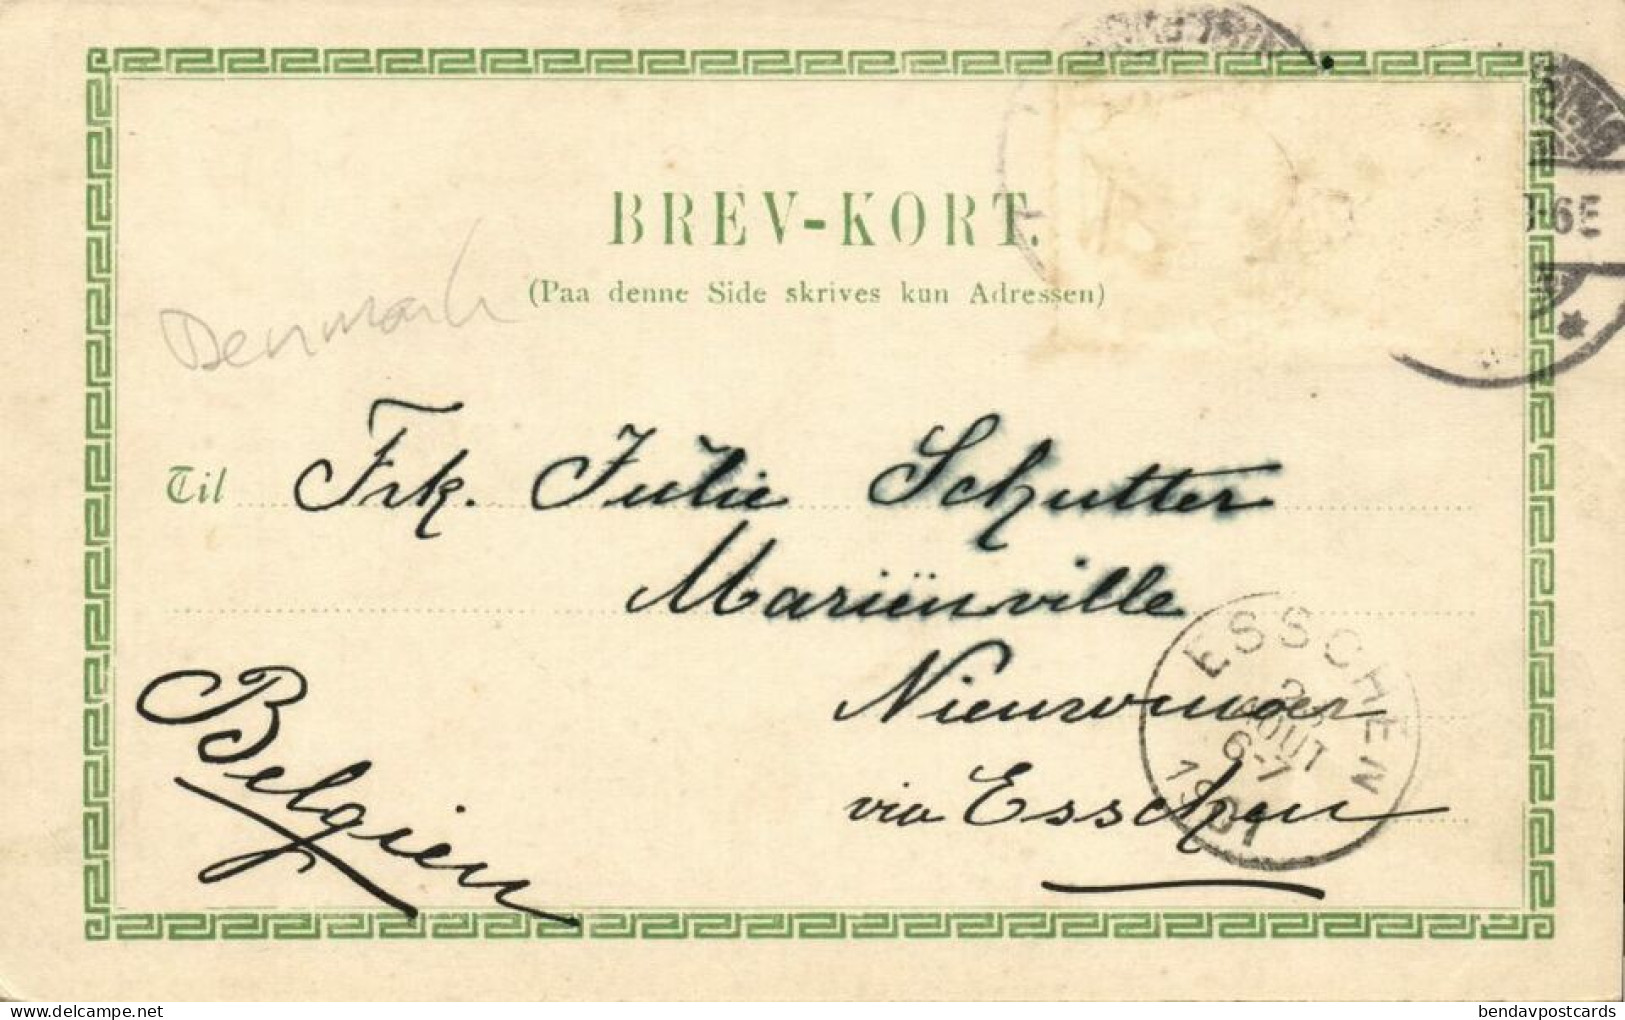 BREV-KORT.
(Paa denne Side skrives kun Adressen)
Denmark
Til Frk. Julie Schutter
Mariënville
Nieuwmoer
via Esschen
Belgien
ESSCHEN
AOUT
6-7
1901
6E
bendavpostcards